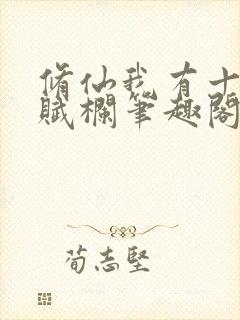 脩仙我有十
賦欄筆趣閣
荀志堅